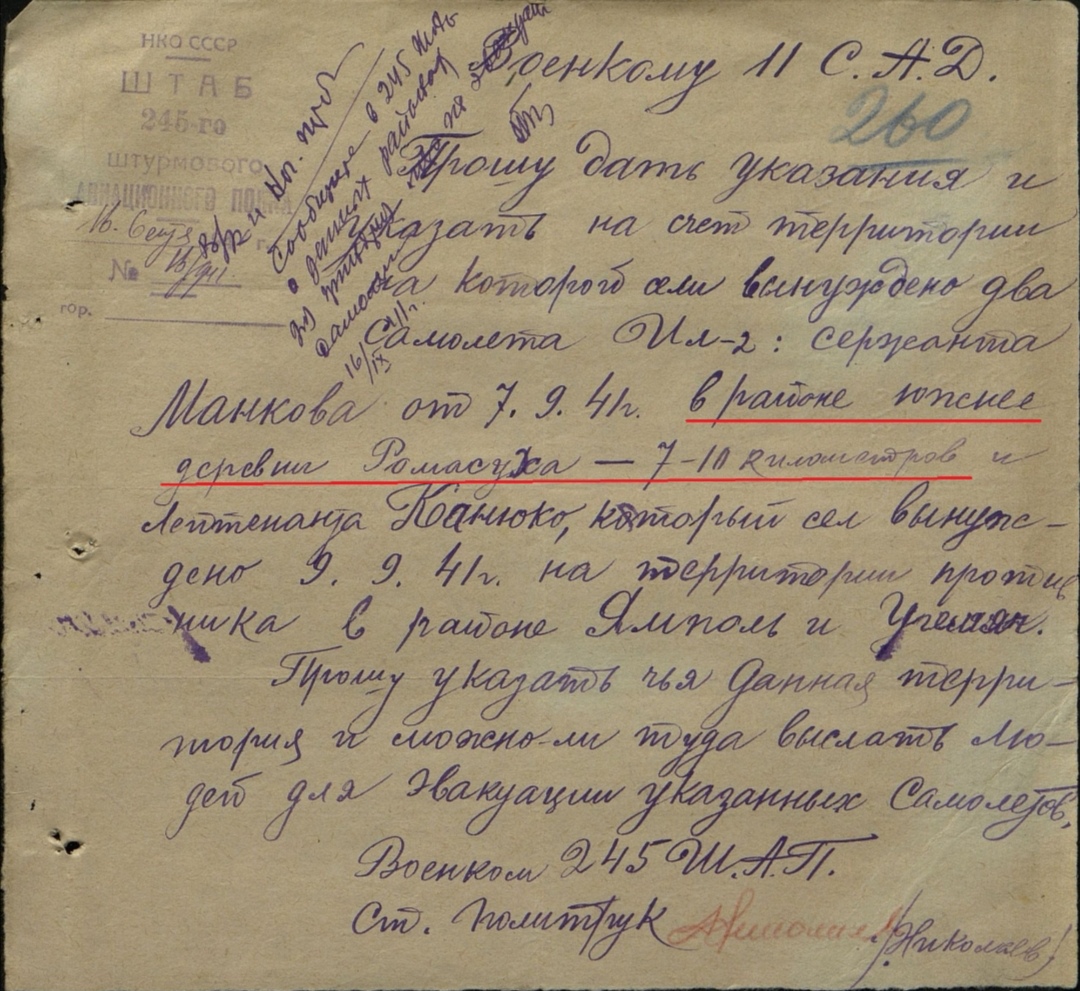 НКО СССР
ШТАБ
245-го
штурмового
АВИАЦИОННОГО ПОЛКА
16. Сент
г.
№
гор.
Сообщите в 245 ШАП
о данных районах
для
самолёт
16/IX 41г.
Военкому 11 С.А.Д.
260
Прошу дать указания и
указать на счет территории
на которой сели вынуждено два
самолета Ил-2: сержанта
Манкова от 7.9.41г. в районе южнее
деревни Ромасуха — 7-10 километров и
Лейтенанта Канюко, который сел вынуж-
дено 9.9.41г. на территории против
ника в районе Ямполь и
Прошу указать чья данная терри-
тория и можно-ли туда выслать лю-
дей для эвакуации указанных самолетов,
Военком 245 Ш.А.П.
Ст. политрук /Николаев/